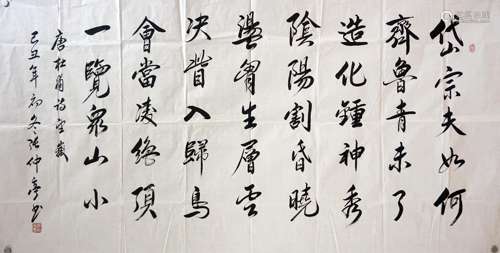 岱宗夫如何
齊魯青未了
造化鍾神秀
陰陽割昏曉
盪胷生層雲
决眥入歸鳥
會當凌絶頂
一覽衆山小
唐杜甫詩望嶽
己丑年初冬張仲亭書